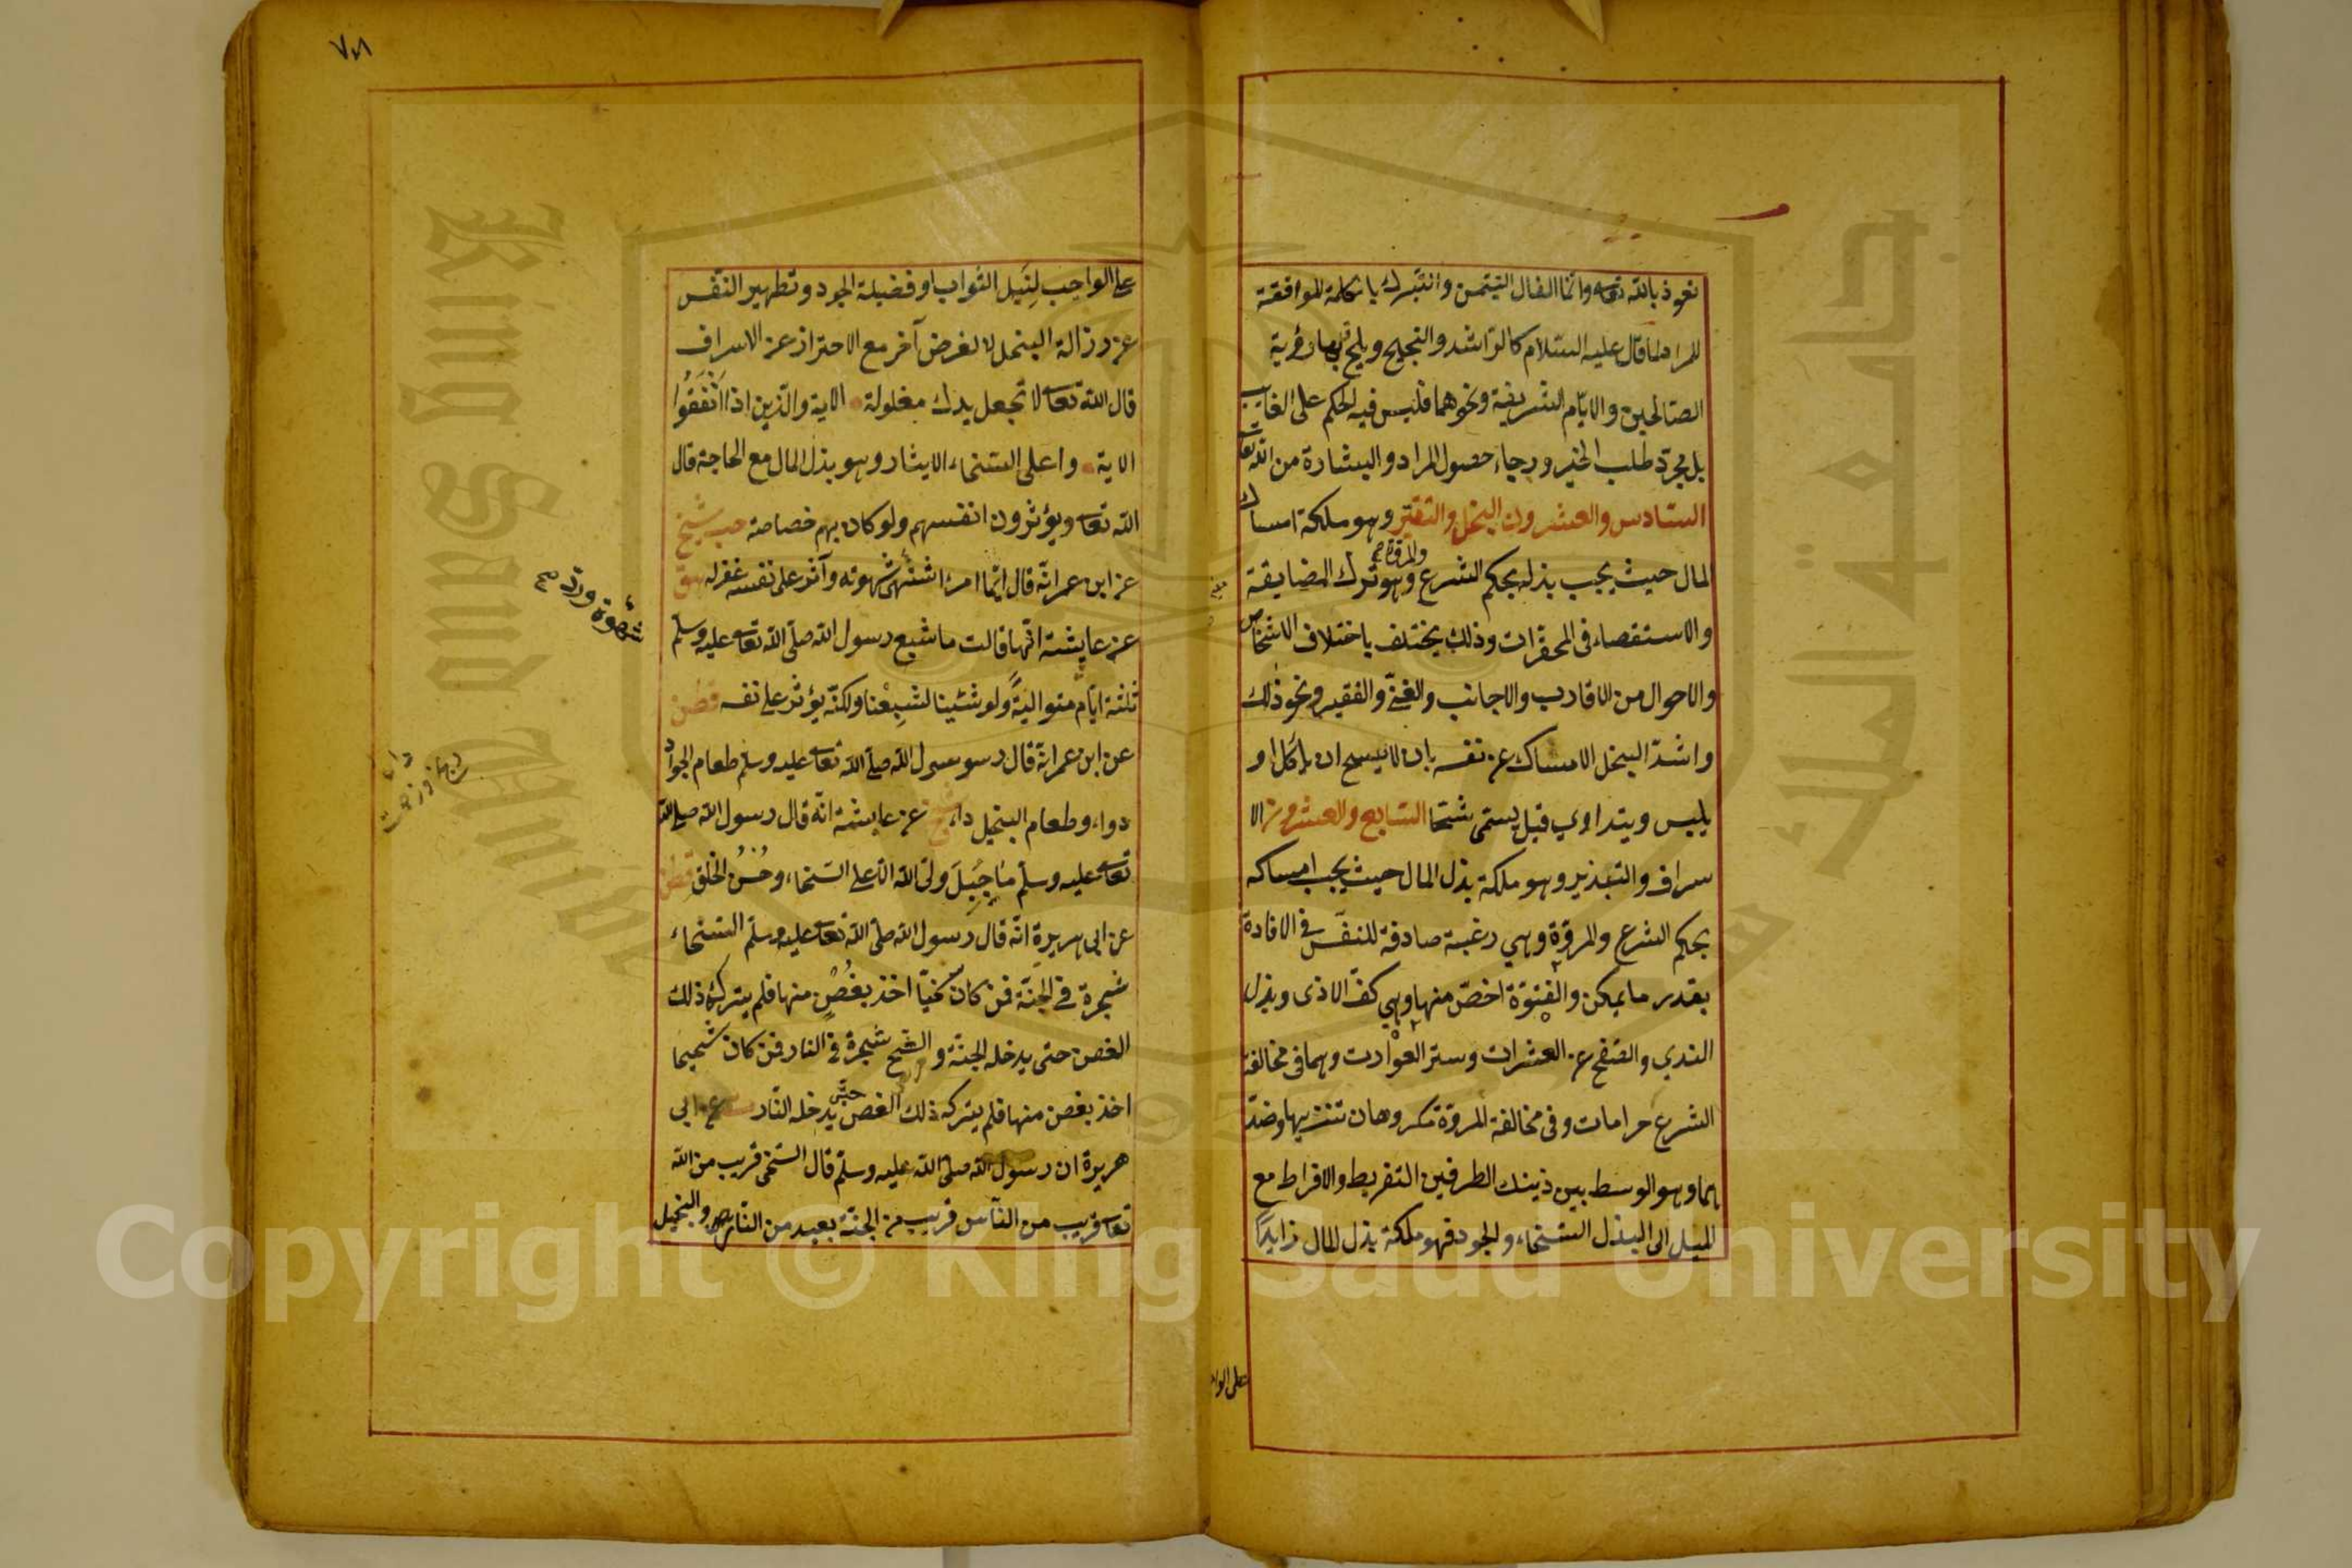 نعوذ بالله تعالى وانما الفال التيمن والتبرك بالكلمة الموافقة
للمراد كما قال عليه السلام كالراشد والنجيح ويلحق بها رؤية
الصالحين والايام الشريفة ونحوهما فليس فيه الحكم على الغايب
بل مجرد طلب الخير ورجاء حصول المراد والبشارة من الله تعالى
السادس والعشرون البخل والتقتير وهو ملكة امساك
المال حيث يجب بذله بحكم الشرع والمروة وهو ترك المضايقة
والاستقصاء في المحقرات وذلك يختلف باختلاف الاشخاص
والاحوال من الاقارب والاجانب والغني والفقير ونحو ذلك
واشد البخل الامساك عن نفسه بان لا يسمح ان يأكل او
يلبس ويتداوي قبل يسمى شحا السابع والعشرون الا
سراف والتبذير وهو ملكة بذل المال حيث يجب امساكه
بحكم الشرع والمروة وهي رغبة صادقة للنفس في الافادة
بقدر ما يمكن والفتوة اخص منها وهي كف الاذى وبذل
الندي والصفح عن العثرات وستر العورات وهما في مخالفة
الشرع حرامات وفي مخالفة المروة مكروهان تنزيها وضد
هما وهو الوسط بين ذينك الطرفين التفريط والافراط مع
الميل الى البذل السخاء والجود فهو ملكة بذل المال زايدا
على الوا
٧٨
على الواجب لنيل الثواب او فضيلة الجود وتطهير النفس
عن رزالة البخل لا لغرض آخر مع الاحتراز عن الاسراف
قال الله تعالى لا تجعل يدك مغلولة الاية والذين اذا انفقوا
الاية واعلى السخاء الايثار وهو بذل المال مع الحاجة قال
الله تعالى ويؤثرون انفسهم ولو كان بهم خصاصة حب شيخ
عن ابن عمر انه قال ايما امرء اشتهى شهوته وآثر على نفسه غفر له هق
عن عايشة انها قالت ما شبع رسول الله صلى الله تعالى عليه وسلم
ثلثة ايام متوالية ولو شئينا لشبعنا ولكنه يؤثر على نفسه قطن
عن ابن عمر انه قال رسو سول الله صلى الله تعالى عليه وسلم طعام الجواد
دواء وطعام البخيل داء شيخ عن عايشة انه قال رسول الله صلى الله
تعالى عليه وسلم ما جبل ولي الله الا على السخاء وحسن الخلق قطن
عن ابى هريرة انه قال رسول الله صلى الله تعالى عليه وسلم السخاء
شجرة في الجنة فمن كان سخيا اخذ بغصن منها فلم يتركه ذلك
الغصن حتى يدخله الجنة والشح شجرة في النار فمن كان شحيحا
اخذ بغصن منها فلم يتركه ذلك الغصن حتى يدخله النار عن ابي
هريرة ان رسول الله صلى الله عليه وسلم قال السخي قريب من الله
تعالى قريب من الناس قريب من الجنة بعيد من النار والبخيل
Copyright © King Saud University
King Saud University
جامعة الملك